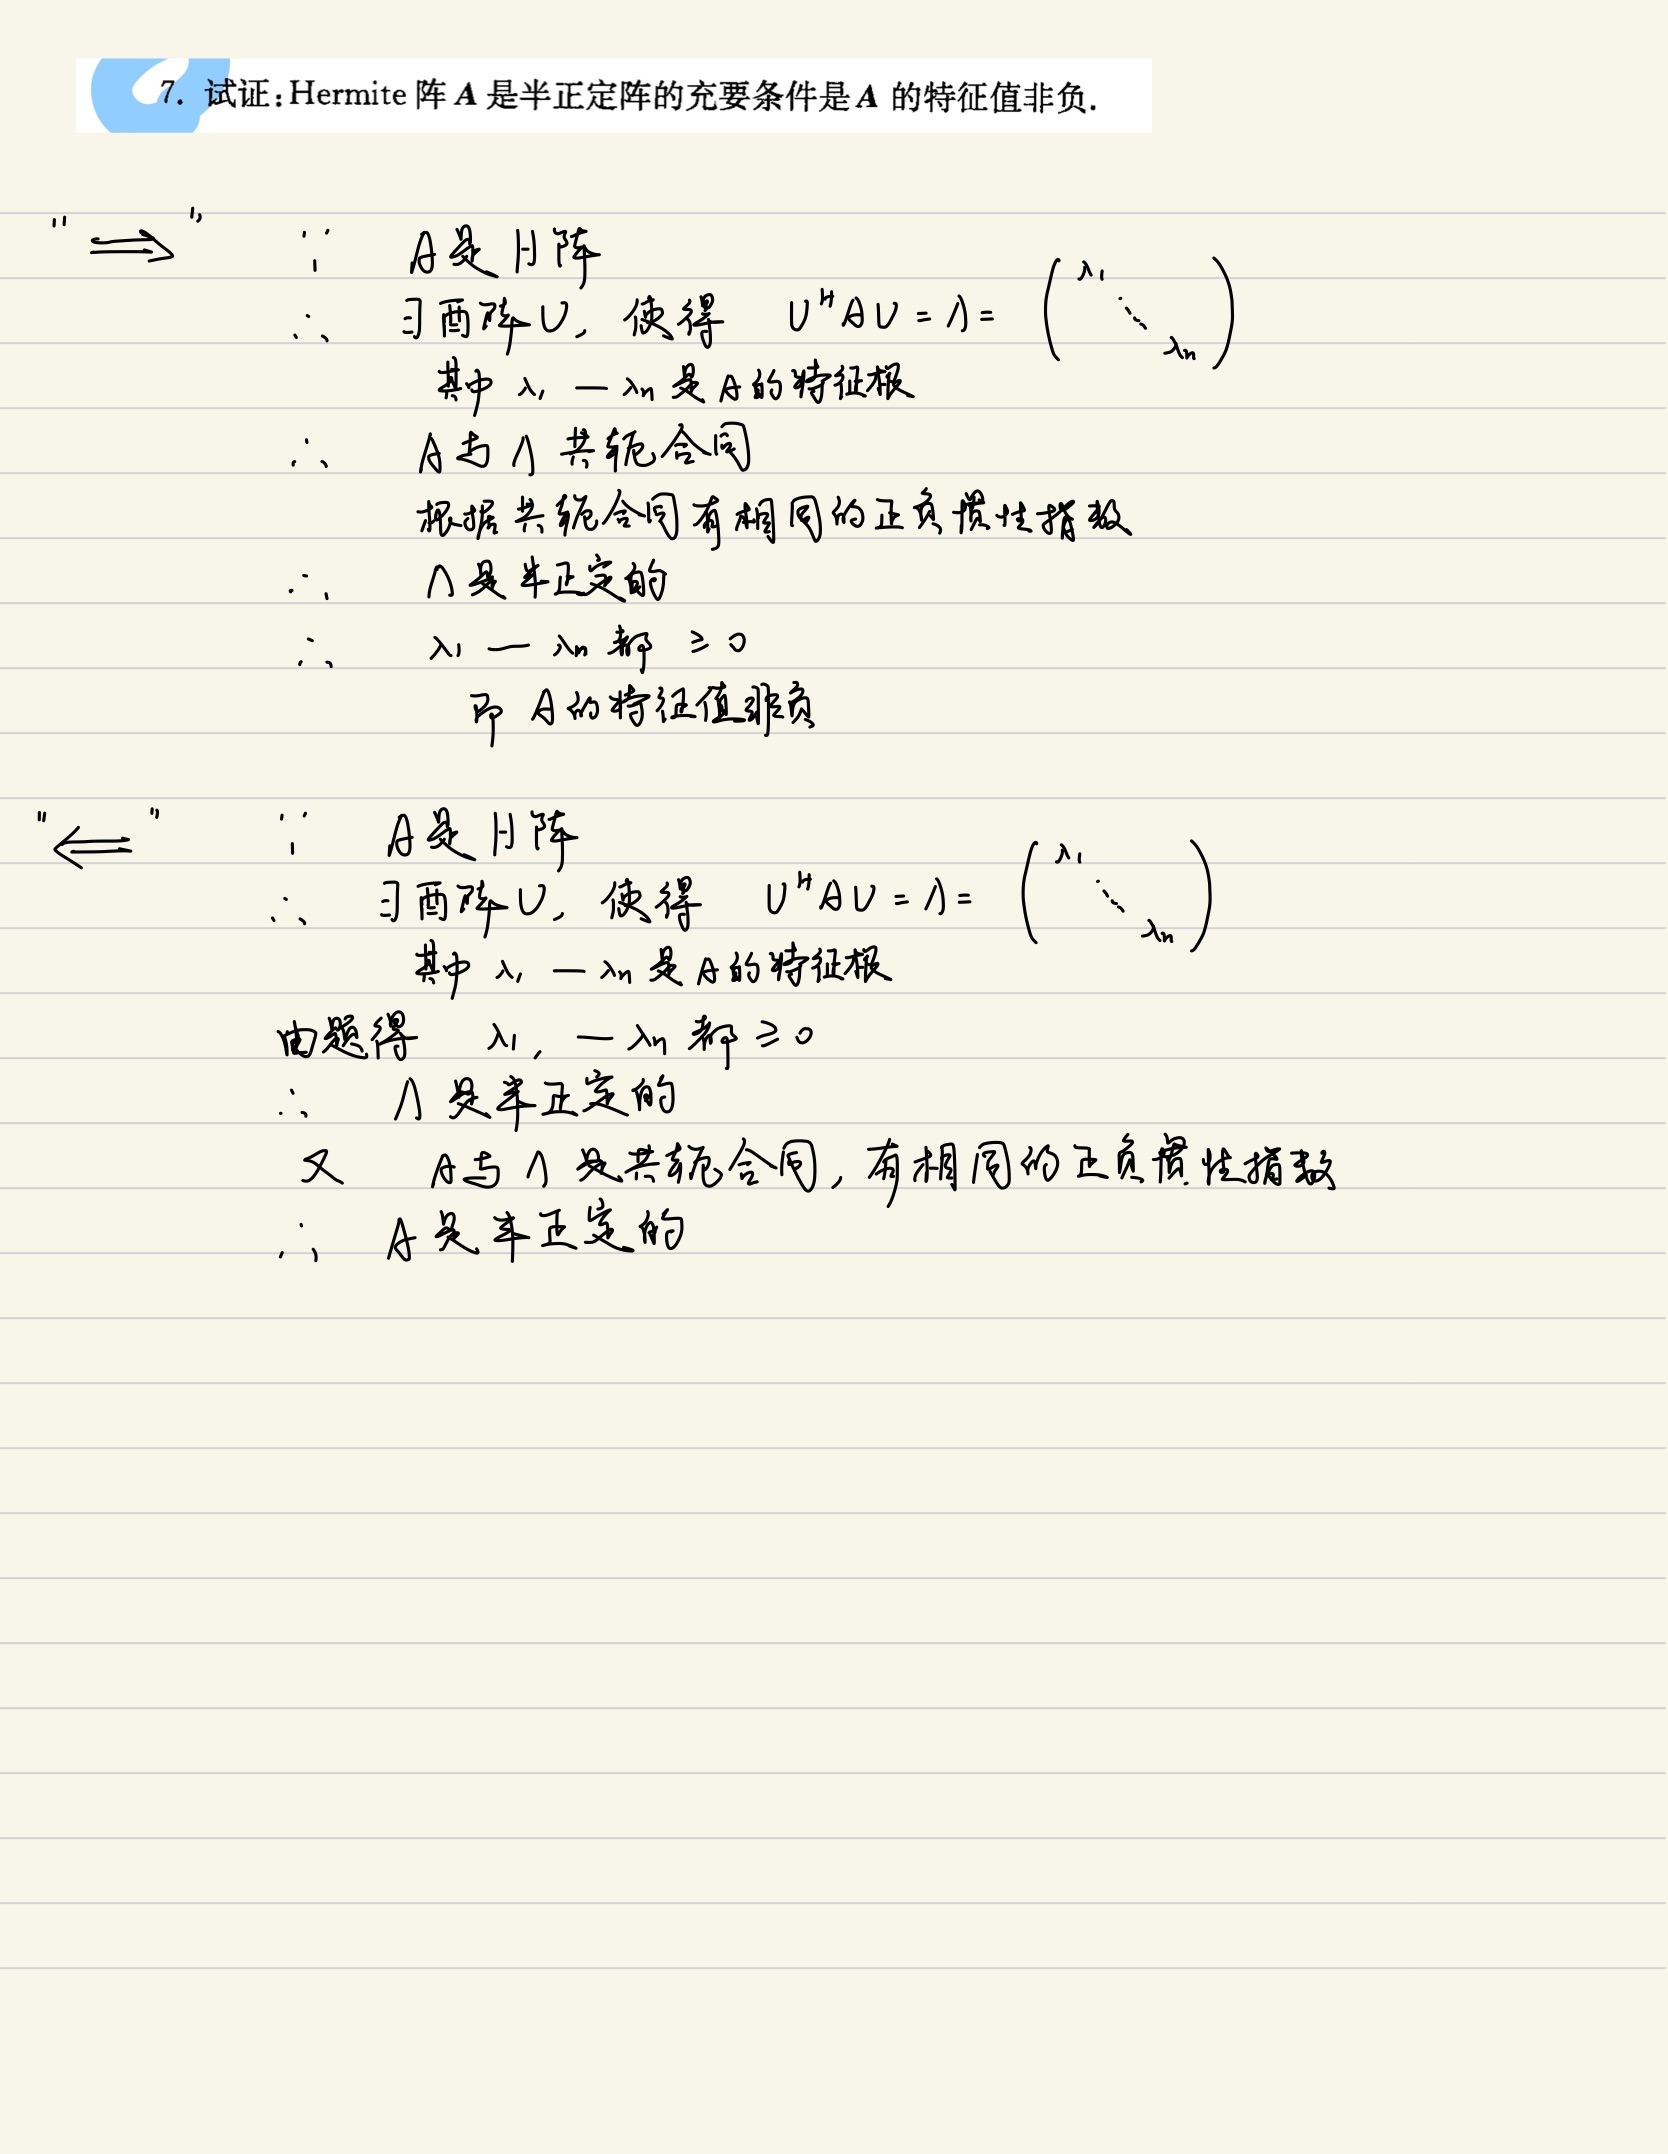 7. 试证:Hermite 阵 A 是半正定阵的充要条件是 A 的特征值非负.
"⟹" ∵ A是H阵
∴ ∃酉阵U, 使得 UᴴAU = Λ = (λ₁ ⋱ λn)
其中 λ₁ — λn 是A的特征根
∴ A与Λ共轭合同
根据共轭合同有相同的正负惯性指数
∴ Λ是半正定的
∴ λ₁ — λn 都 ≥ 0
即 A的特征值非负
"⟸" ∵ A是H阵
∴ ∃酉阵U, 使得 UᴴAU = Λ = (λ₁ ⋱ λn)
其中 λ₁ — λn 是A的特征根
由题得 λ₁, — λn 都 ≥ 0
∴ Λ是半正定的
又 A与Λ是共轭合同, 有相同的正负惯性指数
∴ A是半正定的